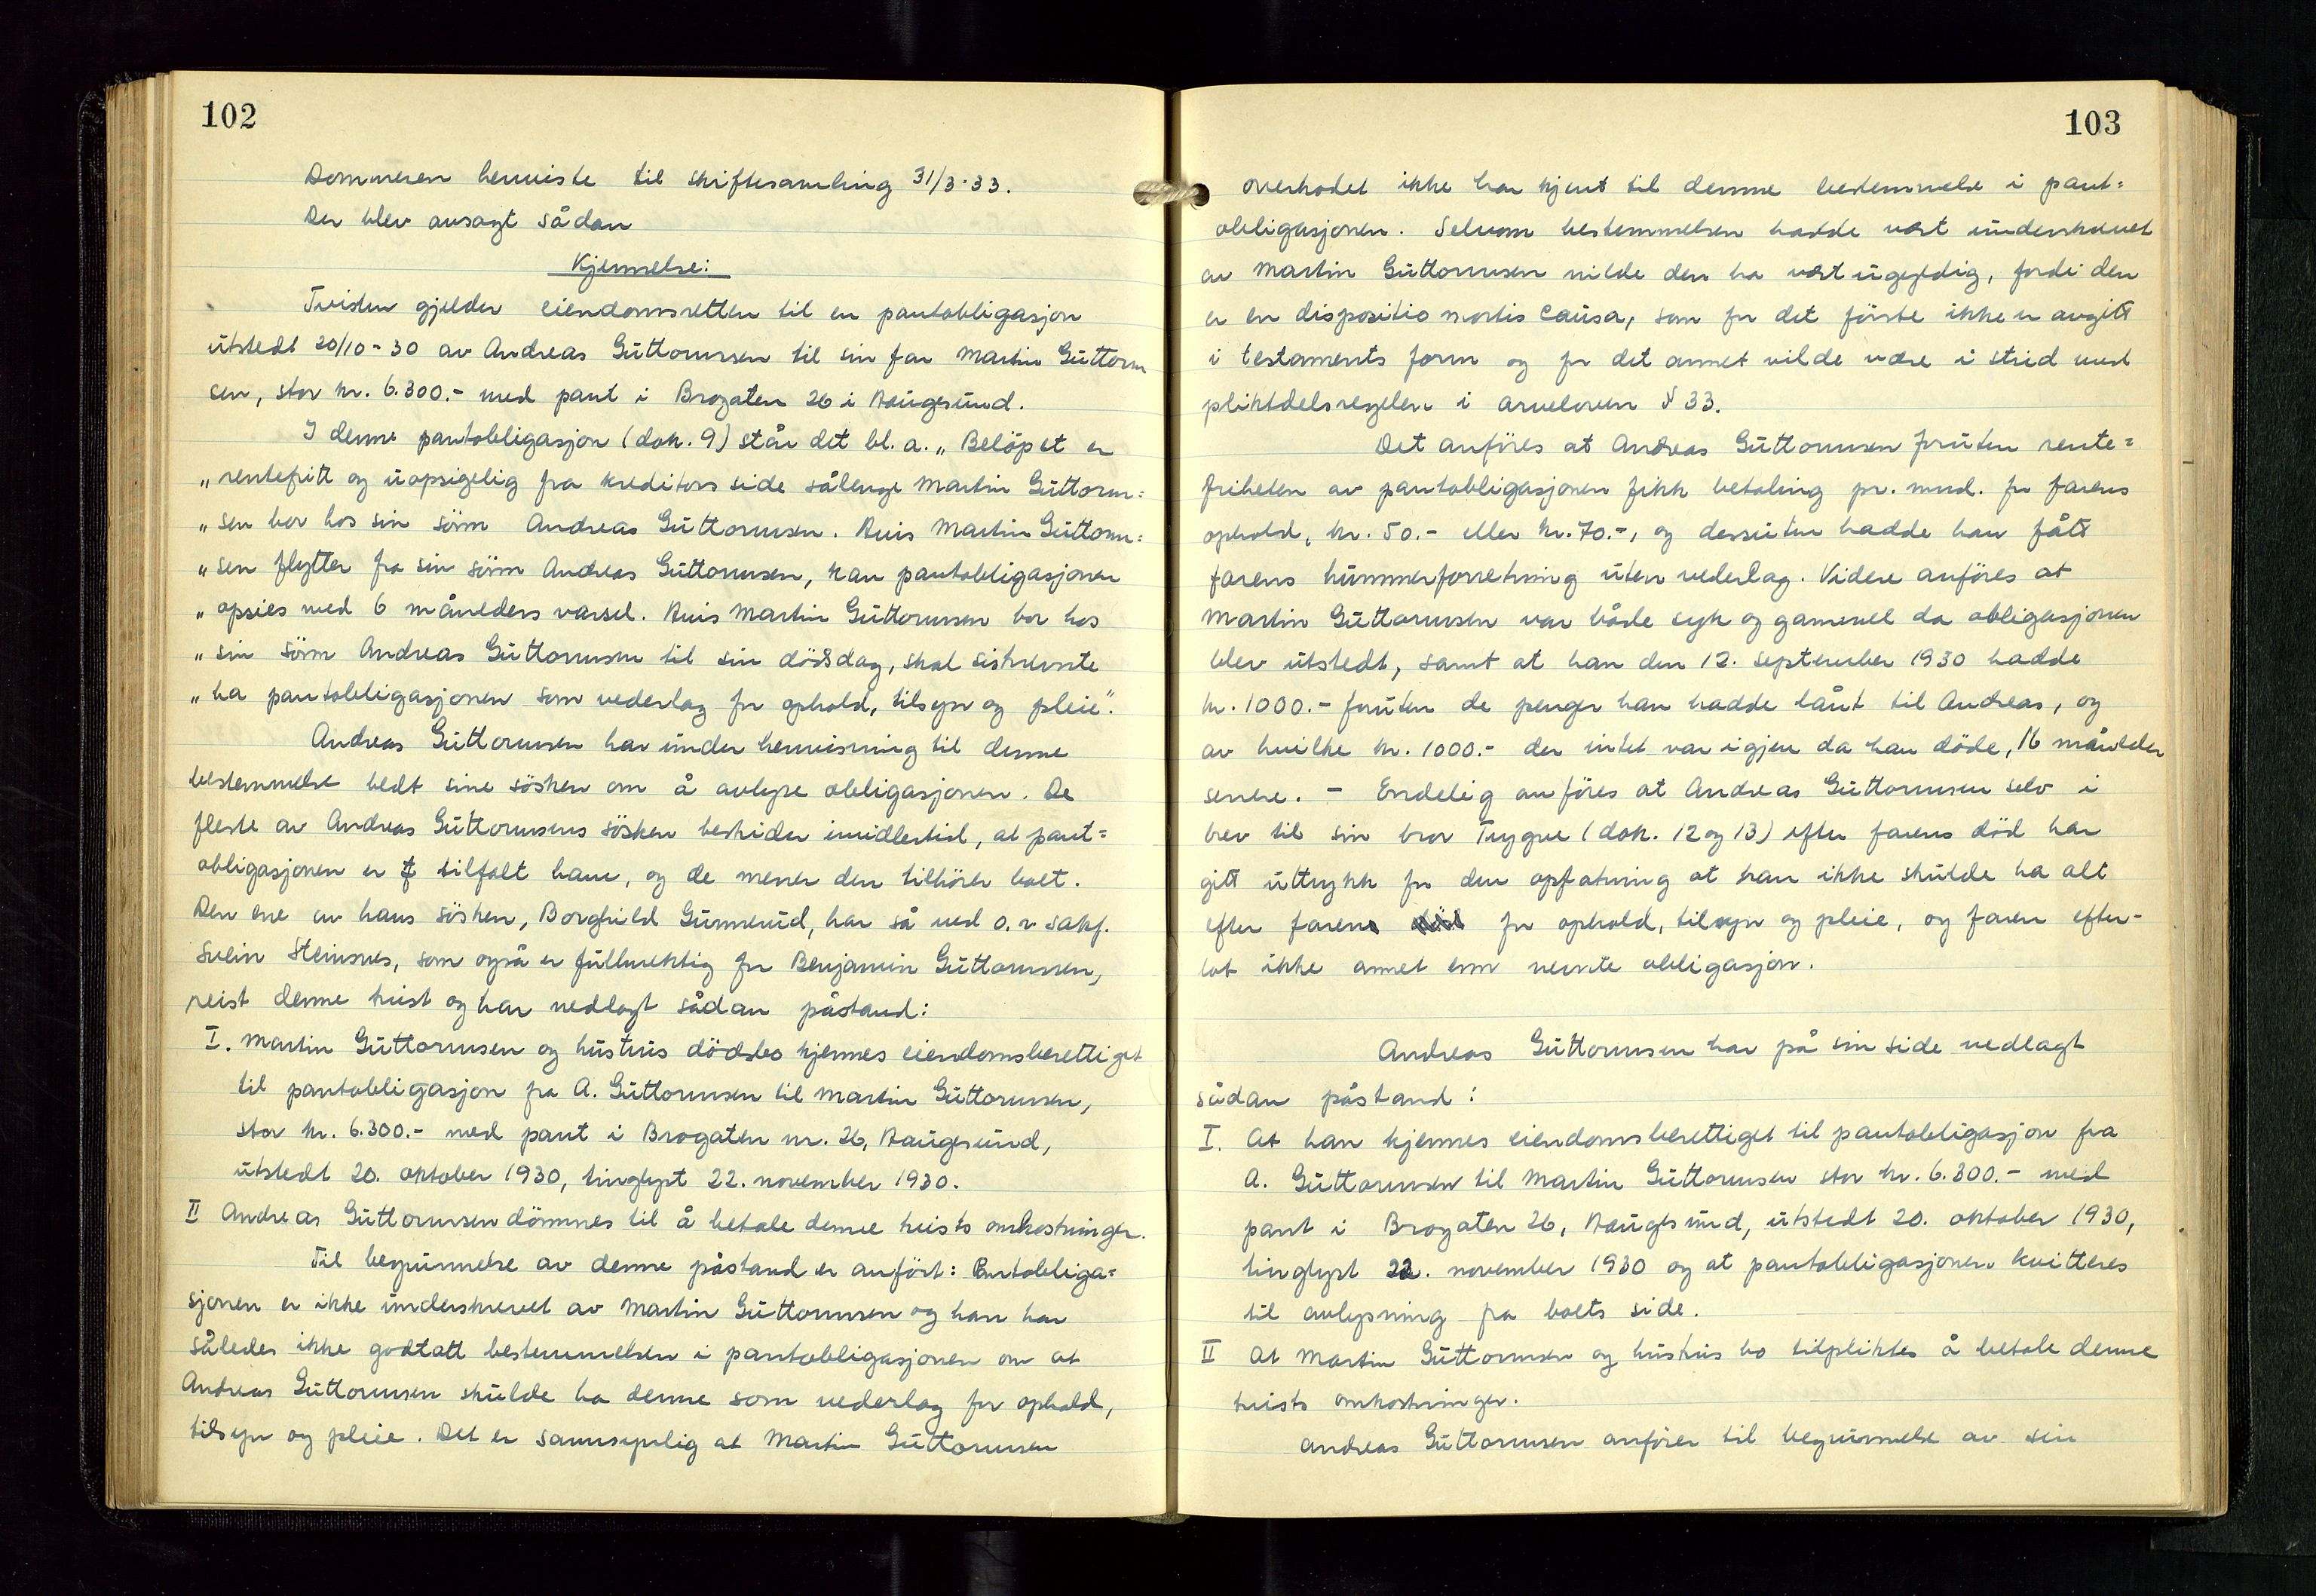 102
Dommeren henviste til skriftesamling 31/3-33.
Der blev avsagt sådan
Kjennelse:
Tvisten gjelder eiendomsretten til en pantobligasjon
utstedt 20/10-30 av Andreas Guttormsen til sin far Martin Guttorm
sen, stor kr. 6.300.- med pant i Brogaten 26 i Haugesund.
I denne pantobligasjon (dok. 9) står det bl. a. „Beløpet er
„rentefritt og uopsigelig fra kreditors side sålenge Martin Guttorm=
„sen bor hos sin sönn Andreas Guttormsen. Hvis Martin Guttorm=
„sen flytter fra sin sönn Andreas Guttormsen, kan pantobligasjonen
„opsies med 6 måneders varsel. Hvis Martin Guttormsen bor hos
„sin sönn Andreas Guttormsen til sin dödsdag, skal sistnevnte
„ha pantobligasjonen som vederlag for ophold, tilsyn og pleie".
Andreas Guttormsen har under henvisning til denne
bestemmelse bedt sine sösken om å avlyse obligasjonen. De
fleste av Andreas Guttormsens sösken bestrider imidlertid, at pant=
obligasjonen er tilfalt ham, og de mener den tilhörer boet.
Den ene av hans sösken, Borghild Gunnerud, har så ved o.r. sakf.
Svein Steinsnes, som også er fullmektig for Benjamin Guttormsen,
reist denne tvist og har nedlagt sådan påstand:
I. Martin Guttormsen og hustrus dödsbo kjennes eiendomsberettiget
til pantobligasjon fra A. Guttormsen til Martin Guttormsen,
stor kr. 6.300.- med pant i Brogaten nr. 26, Haugesund,
utstedt 20. oktober 1930, tinglyst 22. november 1930.
II Andreas Guttormsen dömmes til å betale denne tvists omkostninger.
Til begrunnelse av denne påstand er anfört: Pantobliga=
sjonen er ikke underskrevet av Martin Guttormsen og han har
således ikke godtatt bestemmelsen i pantobligasjonen om at
Andreas Guttormsen skulde ha denne som vederlag for ophold,
tilsyn og pleie. Det er sannsynlig at Martin Guttormsen
103
overhodet ikke har kjent til denne bestemmelse i pant=
obligasjonen. Selvom bestemmelsen hadde vært underskrevet
av Martin Guttormsen vilde den ha vært ugyldig, fordi den
er en dispositio mortis causa, som for det förste ikke er avgitt
i testaments form og for det annet vilde være i strid med
pliktdelsregelen i arveloven § 33.
Det anföres at Andreas Guttormsen foruten rente=
friheten av pantobligasjonen fikk betaling pr. mnd. for farens
ophold, kr. 50.- eller kr. 70.-, og dessuten hadde han fått
farens hummerforretning uten vederlag. Videre anföres at
Martin Guttormsen var både syk og gammel da obligasjonen
blev utstedt, samt at han den 12. september 1930 hadde
kr. 1000.- foruten de penger han hadde lånt til Andreas, og
av hvilke kr. 1000.- der intet var igjen da han döde, 16 måneder
senere. - Endelig anföres at Andreas Guttormsen selv i
brev til sin bror Trygve (dok. 12 og 13) efter farens död har
gitt uttrykk for den opfatning at han ikke skulde ha alt
efter faren for ophold, tilsyn og pleie, og faren efter-
lot ikke annet enn nevnte obligasjon.
Andreas Guttormsen har på sin side nedlagt
sådan påstand:
I. At han kjennes eiendomsberettiget til pantobligasjon fra
A. Guttormsen til Martin Guttormsen stor kr. 6.300.- med
pant i Brogaten 26, Haugesund, utstedt 20. oktober 1930,
tinglyst 22. november 1930 og at pantobligasjonen kvitteres
til avlysning fra boets side.
II At Martin Guttormsen og hustrus bo tilpliktes å betale denne
tvists omkostninger.
Andreas Guttormsen anförer til begrunnelse av sin